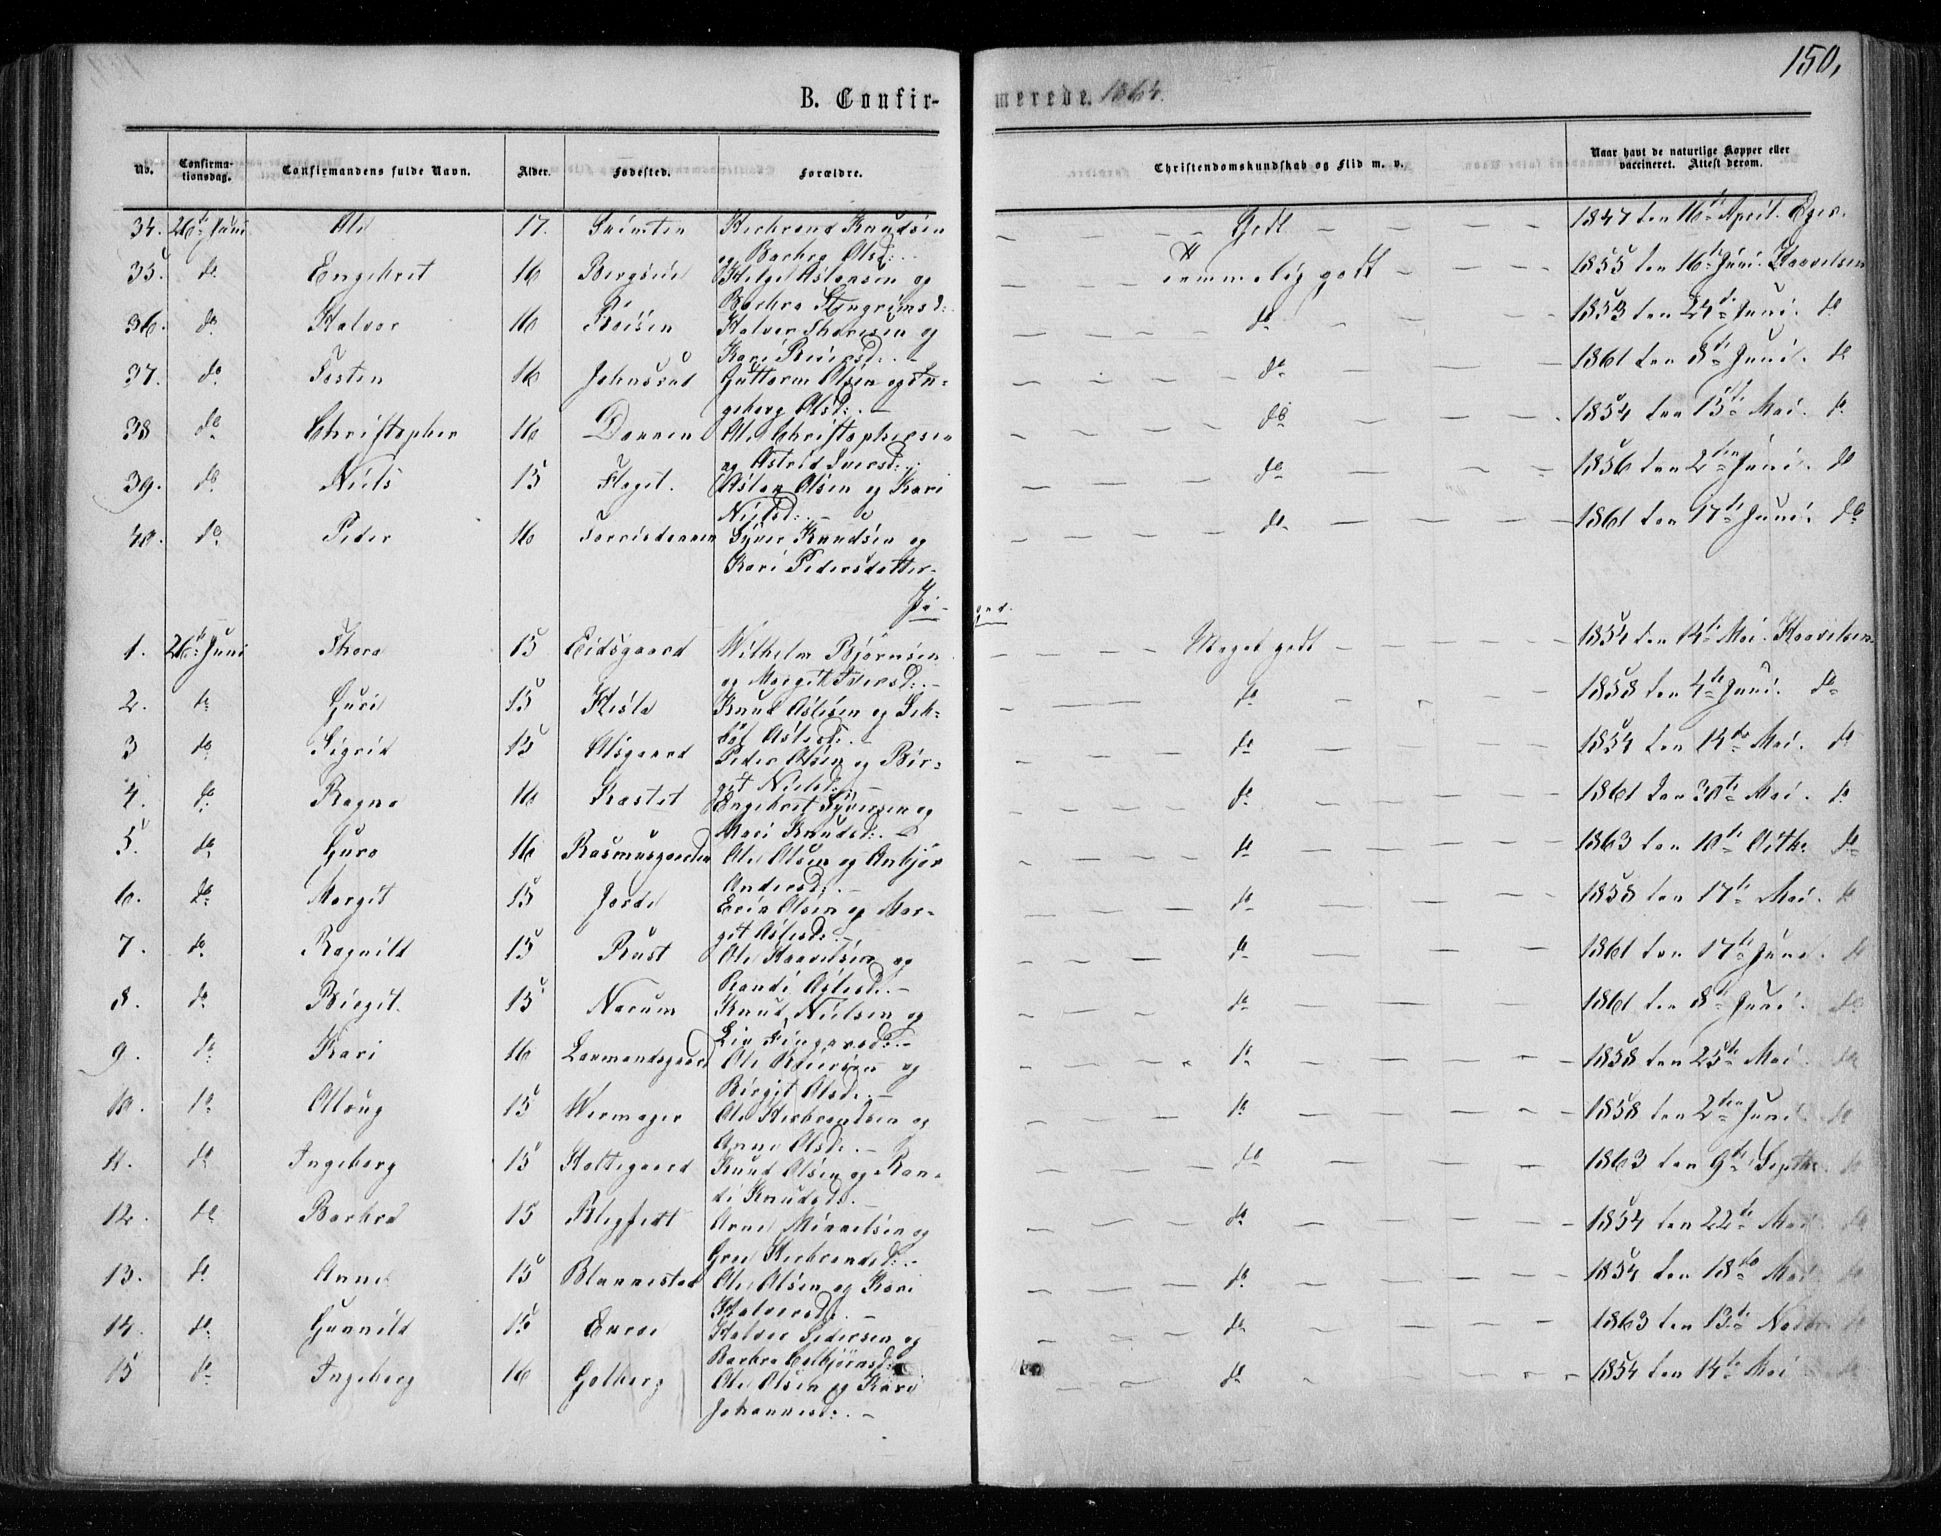 150,
B. Confir- merede. 1864.
No. Confirma-tionsdag. Confirmandens fulde Navn. Alder. Fødested. Forældre. Christendomskundskab og Flid m. v. Naar havt de naturlige Kopper eller vaccineret. Attest derom.
34. 26de Juni Ole 17. Herbrand Knudsen Godt 1847 den 16de April.
og Barbra Olsd:
35. do Engebret 16 Bergsün Helge Aslaksen og Temmelig godt 1855 den 16de Juni. Haavelsen
Barbra Stengrimsd:
36. do Halvor 16 Halvor Thoresen og do 1853 den 24de Juni. do
Kari
37. do Tosten 16 Johnsrud Guttorm Olsen og In- do 1861 den 8de Juni. do
geborg Olsd:
38 do Christopher 16 Dannen Ole Christophersen do 1854 den 15de Mai. do
og Astrid Iversd:
39. do Niels 15 Flaget. Aslag Olsen og Kari do 1856 den 2den Juni do
Nielsd:
40. do Peder 16 Syver Knudsen og do 1861 den 17de Juni. do
Kari Pedersdatter
Pi- ger.
1. 26de Juni Thora 15 Eidsgaard Wilhelm Bjørnsen Meget godt 1854 den 14de Mai. Haavelsen
og Margit Iversd:
2. do Guri 15 Kisle Knud Aslesen og do 1858 den 4de Juni. do
Aslesd:
3 do Sigrid 15 Alsgaard Peder Olsen og Bir- do 1854 den 14de Mai. do
git Nielsd:
4. do Ragna 16 Engebret Syversen og do 1861 den 30te Mai. do
Mari Knudsd:
5. do Guro 16 Rasmusgaarden Ole Olsen og Anbjør do 1863 den 10de Octbr do
Andersd:
6. do Margit 15 Jorde Erik Olsen og Mar- do 1858 den 17de Mai. do
git Aslesd:
7. do Ragnild 15 Rust Ole Haavelsen og do 1861 den 17de Juni. do
Randi Aslesd:
8. do Birgit. 15 Narum Knud Nielsen og do 1861 den 8de Juni do
Liv Fingarsd:
9. do Kari 16 Laumandsgaard Ole Reiersen og do 1858 den 25de Mai do
Birgit Olsd:
10. do Aslaug 15 Wermager Ole Herbrandsen og do 1858 den 2den Juni do
Anne Olsd:
11. do Ingeborg 15 Holtegaard Knud Olsen og Ran- do 1863 den 9de Septbr do
di Knudsd:
12. do Barbra 15 Arne Mikkelsen og do 1854 den 22de Mai do
Gro Herbrandsd:
13. do Anne 15 Ole Olsen og Kari do 1854 den 18de Mai do
Halvorsd:
14. do Gunnild 15 Halvor Pedersen og do 1863 den 13de Novbr do
Barbra Esbjørnsd:
15 do Ingeborg 16 Golberg Ole Olsen og Kari do 1854 den 14de Mai
Johannesd: